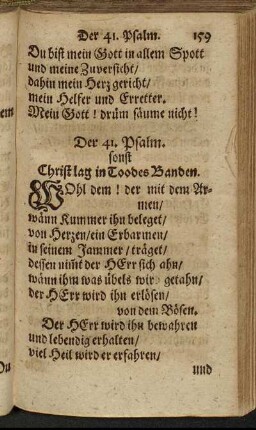 Der 41. Psalm. 159
Du bist mein Gott in allem Spott
und meine Zuversicht/
dahin mein Hertz gericht/
mein Helfer und Erretter.
Mein Gott! drüm säume nicht!
Der 41. Psalm.
sonst
Christ lag in Toodes Banden.
WOhl dem! der mit dem Ar-
men/
wann Kummer ihn beleget/
von Herzen/ ein Erbarmen/
in seinem Jammer/ träget/
dessen nim̃t der HErr sich ahn/
wann ihm was übels wir getahn/
der HErr wird ihn erlösen/
von dem Bösen.
Der HErr wird ihn bewahren
und lebendig erhalten/
viel Heil wird er erfahren/
und